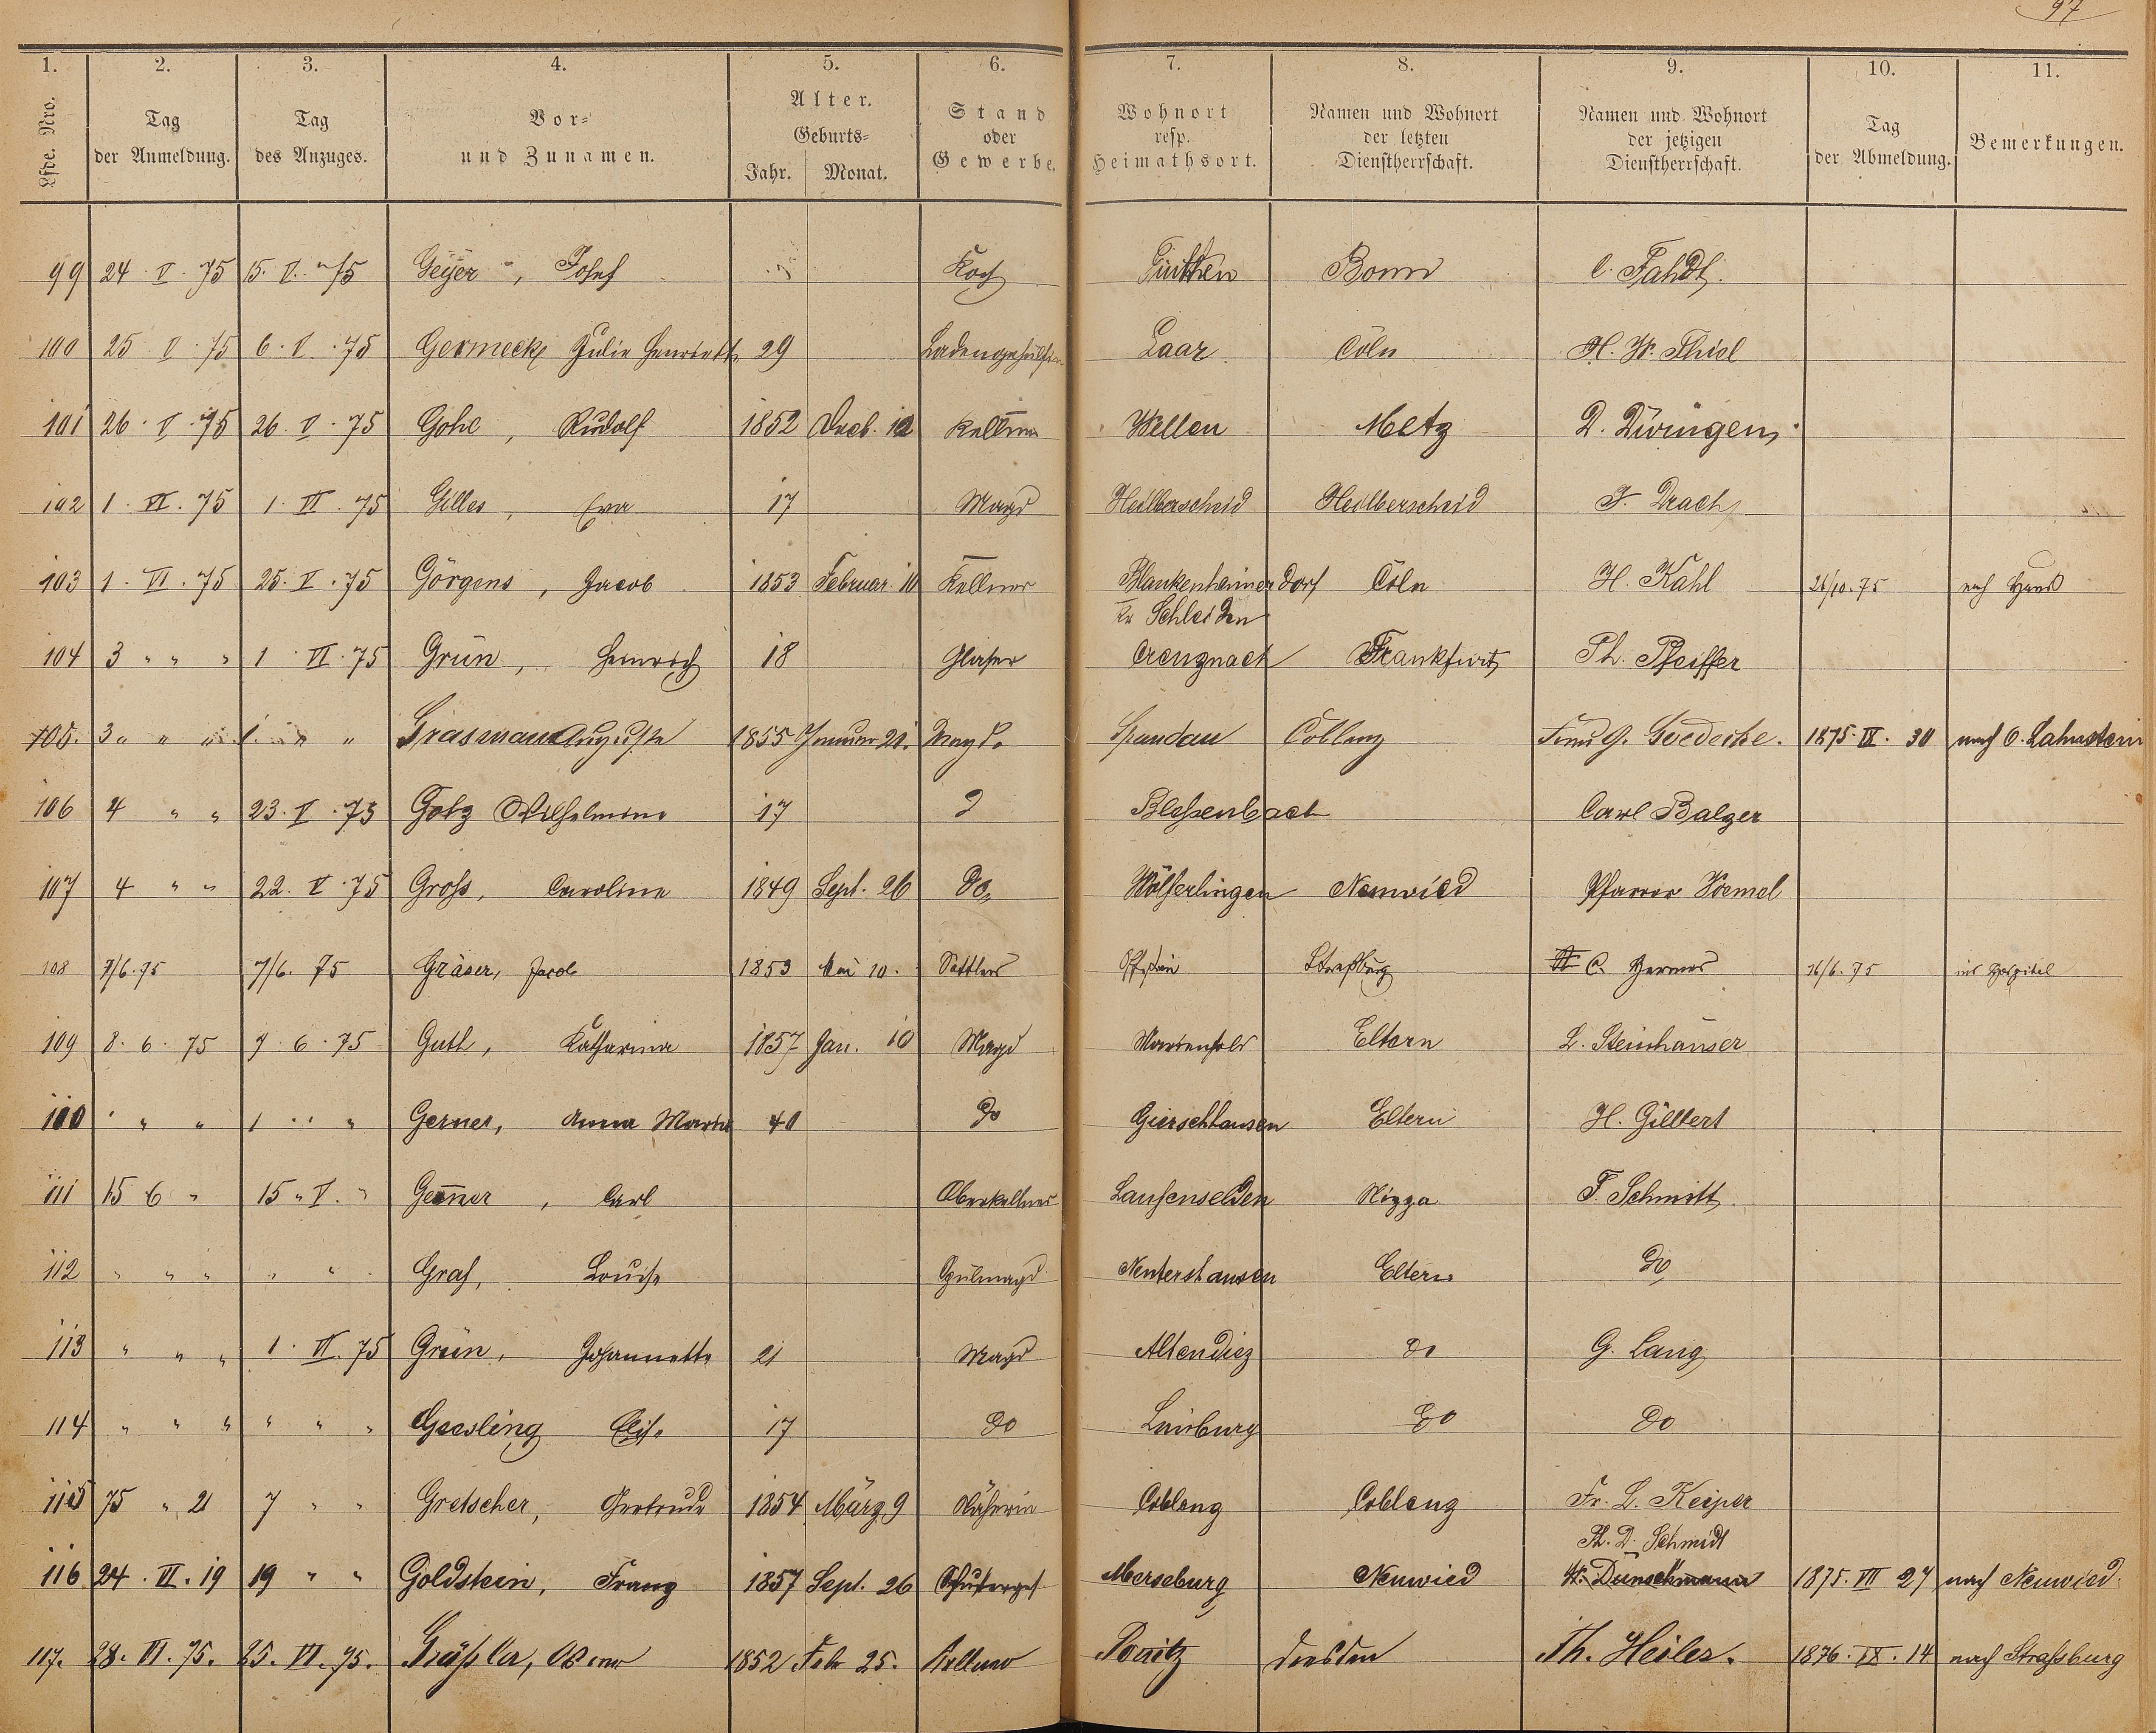 97
1. 2. 3. 4. 5. 6. 7. 8. 9. 10. 11.
Lfde. Nro. Tag der Anmeldung. Tag des Anzuges. Vor- und Zunamen. Alter. Geburts- Jahr. Monat. Stand oder Gewerbe. Wohnort resp. Heimathsort. Namen und Wohnort der letzten Dienstherrschaft. Namen und Wohnort der jetzigen Dienstherrschaft. Tag der Abmeldung. Bemerkungen.
99 24. V. 75 15. V. 75 Geyer, Josef Koch Bonn C. Fahdt.
100 25 V. 75 6. V. 75 Germeck Julie Henriette 29 Ladengehülfin Laar Cöln H. W. Thiel
101 26. V. 75 26. V. 75 Gohl, Rudolf 1852 Decb. 12 Kellner Wellen Metz D. Düringen
102 1. VI. 75 1. VI. 75 Gilles, Eva 17 Magd Heilberscheid Heilberscheid J. Drach
103 1. VI. 75 25. V. 75 Görgens, Jacob 1853 Februar 10 Kellner Blankenheimer Dorf Cöln H. Kahl 26/10. 75 nach Haus
Kr Schleiden
104 3 " " " 1 VI. 75 Grün, Heinrich 18 Glaser Creuznach Frankfurt Ph. Pfeiffer
105. 3 " " " 1. " " Grasmann Auguste 1855 Januar 21. Magd. Spandau Coblenz G. Goedecke. 1875. IX. 30 nach O. Lahnstein
106 4 " " 23. V. 75 Götz Wilhelmine 17 Blessenbach Carl Balzer
107 4 " " 22. V. 75 Groß, Caroline 1849 Sept. 26 Do. Wölferlingen Neuwied Pfarrer Vömel
108 7/6. 75 7/6. 75 Gräser, Jacob 1853 Mai 10. Sattler Straßburg C. Hermes 16/6. 75 ins Hospital
109 8. 6. 75 7. 6. 75 Guth, Katharina 1857 Jan. 10 Magd Marienfels Eltern L. Steinhäuser
110 " " " 1 " " Gerner, Anna Maria 40 Do Gierschhausen Eltern H. Gilbert
111 15 6 " 15 " V. " Genner, Carl Oberkellner Laufenselden Nizza F. Schmitt
112 " " " " " Graf, Louise Spülmagd Nentershausen Eltern Do
113 " " " 1. VI. 75 Grün, Johannette 21 Magd Altendiez Do G. Lang
114 " " " " " " Geesling Elise 17 Do Limburg Do Do
115 75 " 21 7 " " Gretscher, Gertrude 1854 März 9 Näherin Coblenz Coblenz Fr. L. Keiper
Ph. D. Schmidt
116 24. VI. 19 19 " " Goldstein, Franz 1857 Sept. 26 Schusterges Merseburg Neuwied W. Dünschmann 1875. VII 27 nach Neuwied.
117. 28. VI. 75. 25. VI. 75. Gräßler, 1852 Feb 25. Kellner Ponitz Dresden Th. Heiler. 1876. IX. 14 nach Strassburg